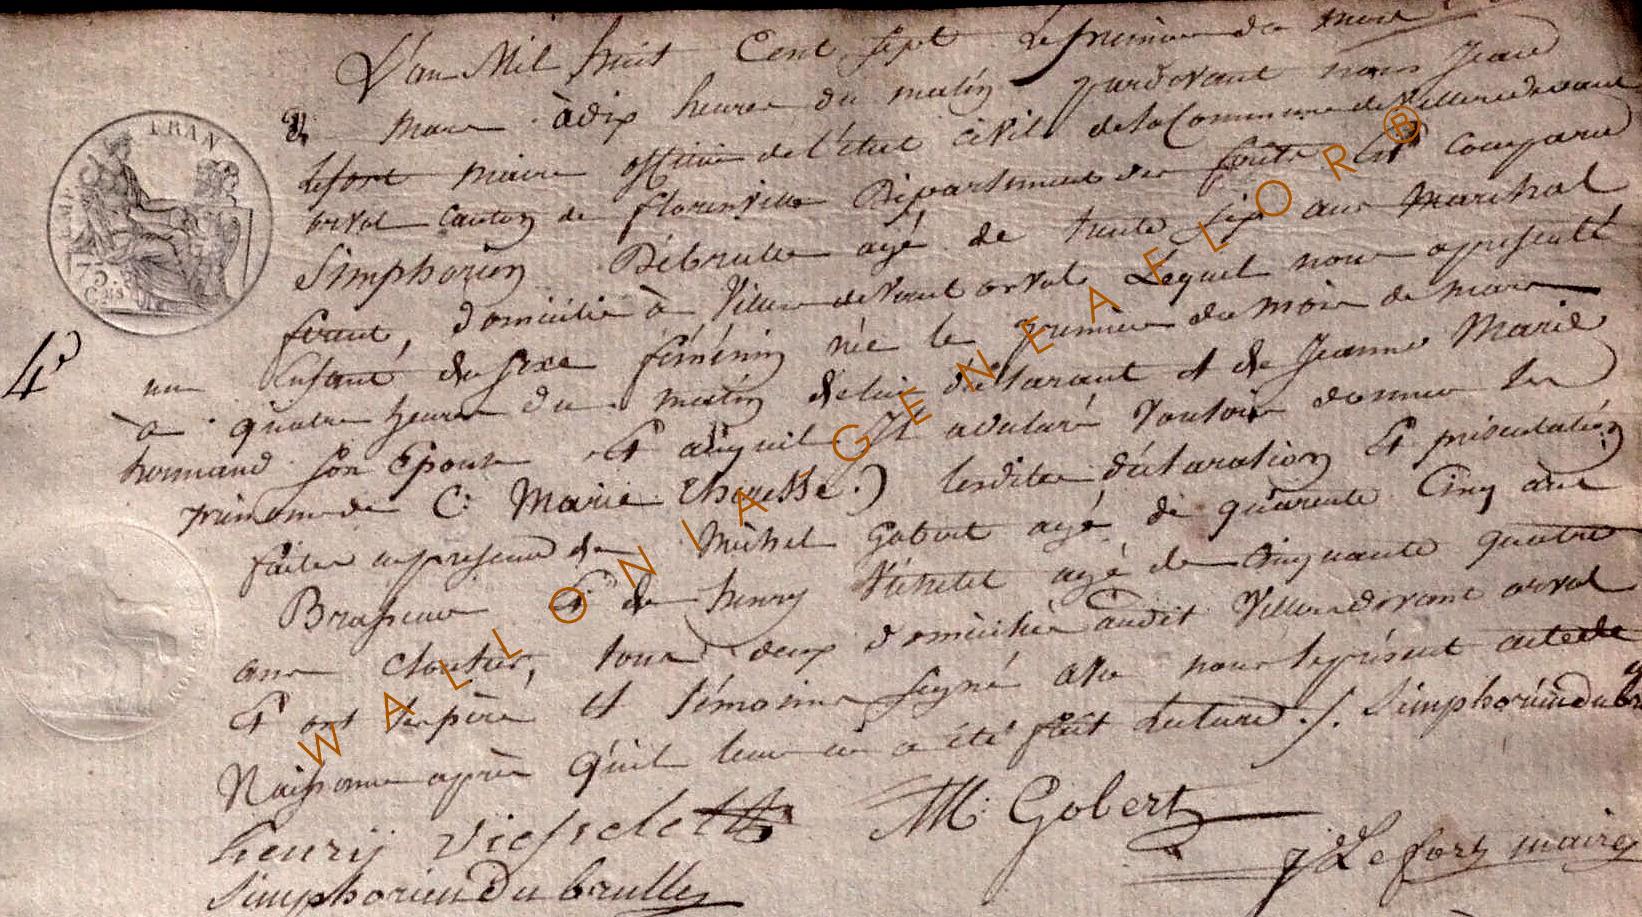 L'an Mil huit Cent sept le premier du mois
de mars à dix heures du matin pardevant nous Jean
lefort maire officier de l'état civil de la Commune de Villersdevant
orval canton de florenville Département des forêts Est comparu
Simphorien Débrulle agé de trente six ans Marchal
ferant, domicilié à Villers devant orval Lequel nous a présenté
un Enfant du sexe féménin née le premier du mois de mars
à quatre heures du matin de lui déclarant et de Jeanne Marie
hormand son Epouse Et auquel Il a déclaré Vouloir donner les
prénoms de C: Marie Theresse.) lesdites déclaration Et présentation
faites en présence de Michel Gobert agé de quarente Cinq ans
Brasseur Et de henry agé de Cinquante quatre
ans cloutier, tous deux domicilié audit Villersdevant orval
Et ont les père et témoins signé avec nous le présent acte de
Naissance après qu'il leur en a été fait lecture./. Simphorien du
4e
henrij viesselet
M: Gobert
J Lefort maire
Simphorien Du brulle
FRAN
EMP
75
CMS
WALLONIA-GENEAFLOR®